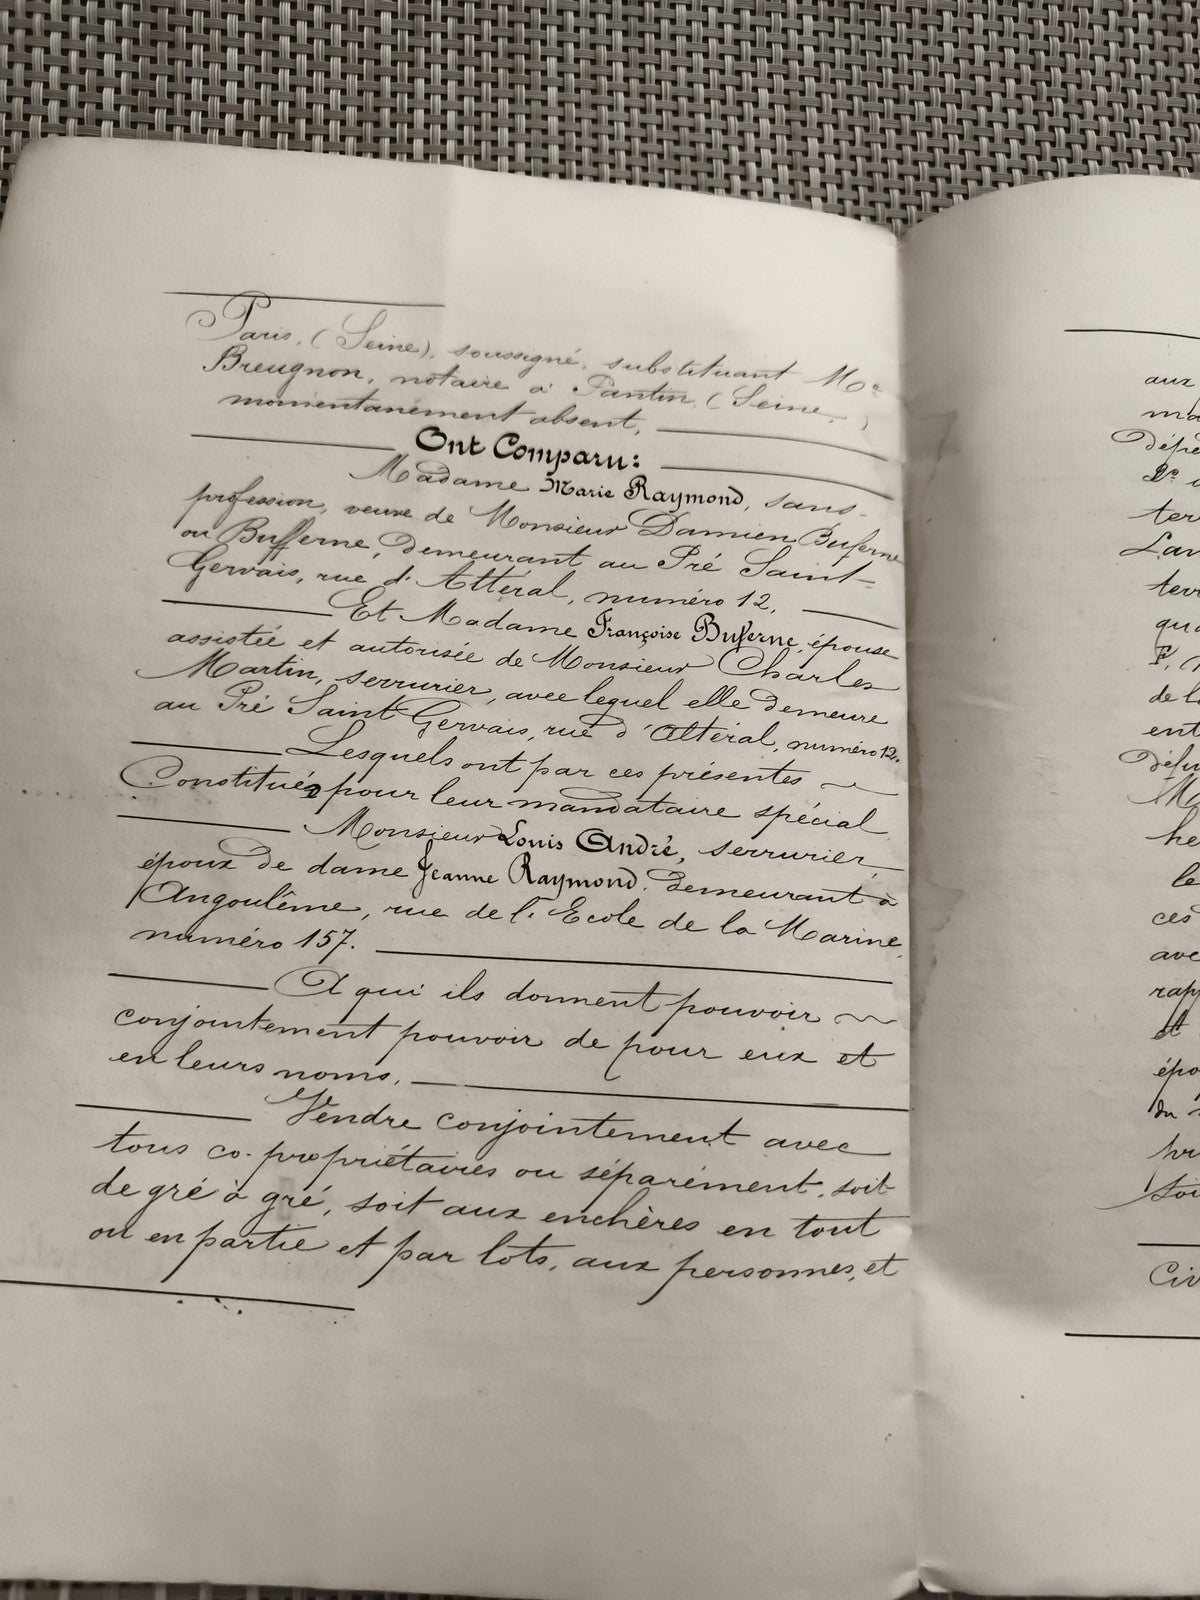 Paris, (Seine), soussigné, substituant Me
Breugnon, notaire à Pantin (Seine,)
momentanément absent,
Ont Comparu:
Madame Marie Raymond, sans-
profession, veuve de Monsieur Damien Buferne
ou Bufferne, demeurant au Pré Saint-
Gervais, rue d'Altéral, numéro 12,
Et Madame Françoise Buferne, épouse
assistée et autorisée de Monsieur Charles
Martin, serrurier, avec lequel elle demeure
au Pré Saint Gervais, rue d'Altéral, numéro 12.
Lesquels ont par ces présentes
Constitué pour leur mandataire spécial
Monsieur Louis André, serrurier,
époux de dame Jeanne Raymond. demeurant à
Angoulême, rue de l'Ecole de la Marine,
numéro 157.
A qui ils donnent pouvoir
conjointement pouvoir de pour eux et
en leurs noms,
Vendre conjointement avec
tous co-propriétaires ou séparément, soit
de gré à gré, soit aux enchères en tout
ou en partie et par lots, aux personnes, et
aux
ma
dépe
ter
Lav
terr
qua
F.
de la
ent
défu
Ma
he
le
ces
ave
rap
et
épo
du
pri
Soi
Civ